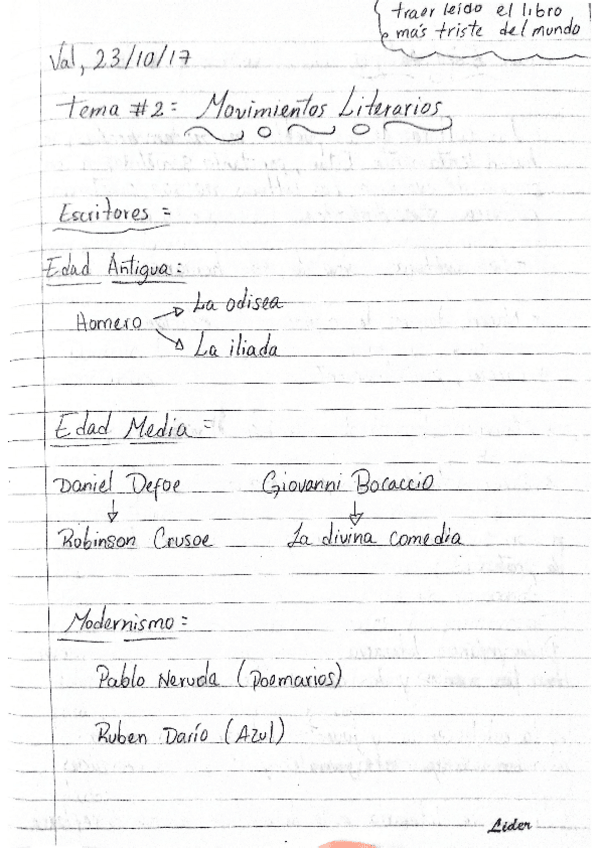 traer leido el libro
mas triste del mundo
Val, 23/10/17
Tema #2: Movimientos Literarios
Escritores =
Edad Antigua:
Homero
La odisea
La iliada
Edad Media =
Daniel Defoe Giovanni Bocaccio
Robinson Crusoe La divina comedia
Modernismo =
Pablo Neruda (Poemarios)
Ruben Darío (Azul)
Lider